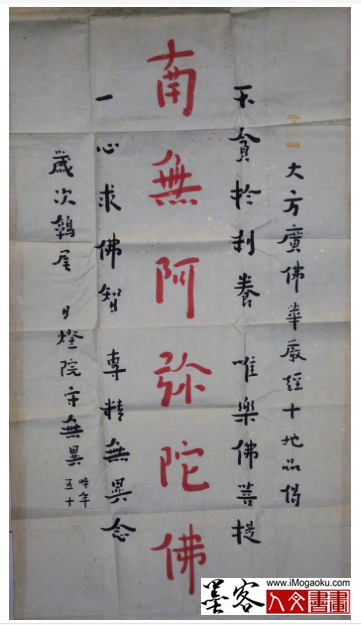 大方廣佛華嚴經十地品偈
不貪於利養 唯樂佛菩提
南無阿彌陀佛
一心求佛智 專精無異念
歲次鶉尾 月燈院守無異 時年五十
墨客 www.iMogaoku.com
人文書畫